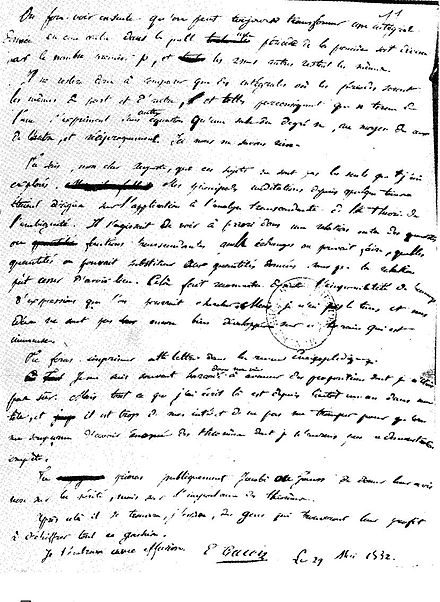 On fera voir ensuite qu'on peut toujours transformer une intégrale
donnée en une autre dans laquelle une période de la première soit divisée
par le nombre premier p, et les 2n-1 autres restent les mêmes.
Il ne restera donc à comparer que des intégrales où les périodes seront
les mêmes de part et d'autre, et telles par conséquent que n termes de
l'une s'expriment sans autre équation qu'une seule du degré n, au moyen de ceux
de l'autre, et réciproquement. Ici nous ne savons rien.
Tu sais, mon cher Auguste, que ces sujets ne sont pas les seuls que j'aie
explorés. Mes principales méditations depuis quelque temps
étaient dirigées sur l'application à l'analyse transcendante de la théorie de
l'ambiguité. Il s'agissait de voir à priori dans une relation entre des quantités
ou fonctions transcendantes quels échanges on pouvait faire, quelles
quantités on pouvait substituer aux quantités données sans que la relation
pût cesser d'avoir lieu. Cela fait reconnaitre l'impossibilité de beaucoup
d'expressions que l'on pourrait chercher. Mais je n'ai pas le tems et mes
idées ne sont pas encore bien développées sur ce terrain qui est
immense.
Tu feras imprimer cette lettre dans la revue Encyclopédique.
Je me suis souvent hasardé dans ma vie à avancer des propositions dont je n'étais
pas sûr. Mais tout ce que j'ai écrit là est depuis bientôt un an dans ma
tête, et il est trop de mon intérêt de ne pas me tromper pour qu'on
me soupçonne d'avoir énoncé des théorèmes dont je n'aurais pas la démonstration
complète.
Tu prieras publiquement Jacobi ou Gauss de donner leur avis
non sur la vérité, mais sur l'importance des théorèmes.
Après cela il se trouvera, j'espère, des gens qui trouveront leur profit
à déchiffrer tout ce gachis.
Je t'embrasse avec effusion. E Galois Le 29 Mai 1832.